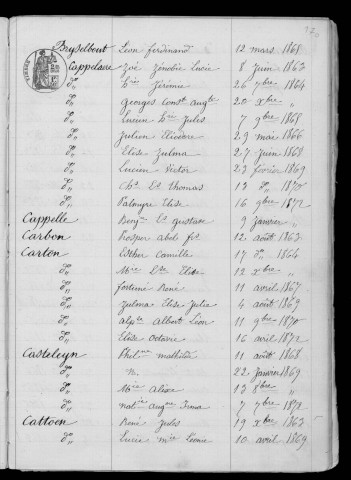 Bryselbout Léon Ferdinand 12 mars 1868
Cappelaere Zoé Zénobie Lucie 8 Juin 1863
d° Hri Jérémie 26 7bre 1864
d° Georges Const Augte 20 Xbre "
d° Lucien Hri Jules 7 9bre 1865
d° Julien Eliodore 29 mai 1866
d° Elise Zulma 27 Juin 1868
d° Lucien Victor 23 février 1869
d° Chs Ls Thomas 13 d° 1870
d° Palmyre Elise 16 9bre 1872
Cappelle Benjn Ls Gustave 9 Janvier "
Carbon Prosper Abel fs 12 août 1863
Carten Esther Camille 17 d° 1864
d° Mie Lse Elise 12 Xbre "
d° Fortuné René 11 avril 1867
d° Zulma Elise Julie 4 août 1869
d° Alpse Albert Léon 11 9bre 1870
d° Elise Octavie 16 avril 1872
Casteleyn Philne Mathilde 11 août 1868
d° N. 22 Janvier 1869
d° Mie Alixe 13 8bre "
d° Nalie Augne Irma 7 7bre 1872
Cattoen René Jules 19 Xbre 1863
d° Lucie Mie Léonie 10 avril 1869